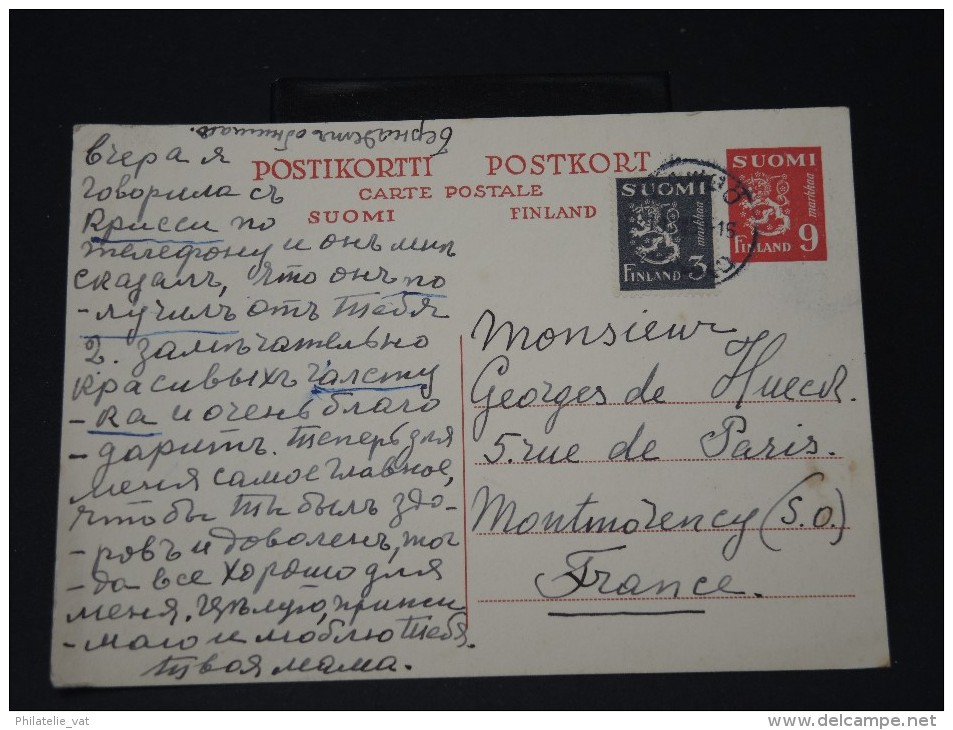 Бернадетъ обнимаю.
вчера я
говорила съ
Крисси по
телефону и онъ мнѣ
сказалъ, что онъ по
-лучилъ отъ тебя
2. замѣчательно
красивыхъ галсту
-ка и очень благо
-даритъ. Теперь для
меня самое главное,
чтобы ты былъ здо-
-ровъ и доволенъ, тог
-да все хорошо для
меня. Цѣлую, прижи
-маю и люблю тебя.
твоя мама.
POSTIKORTTI POSTKORT
CARTE POSTALE
SUOMI FINLAND
SUOMI
markkaa
FINLAND 3
SUOMI
markkaa
FINLAND 9
Monsieur
Georges de Hueck.
5. rue de Paris.
Montmorency (S.O.)
France.
Philatelie_vat
www.delcampe.net